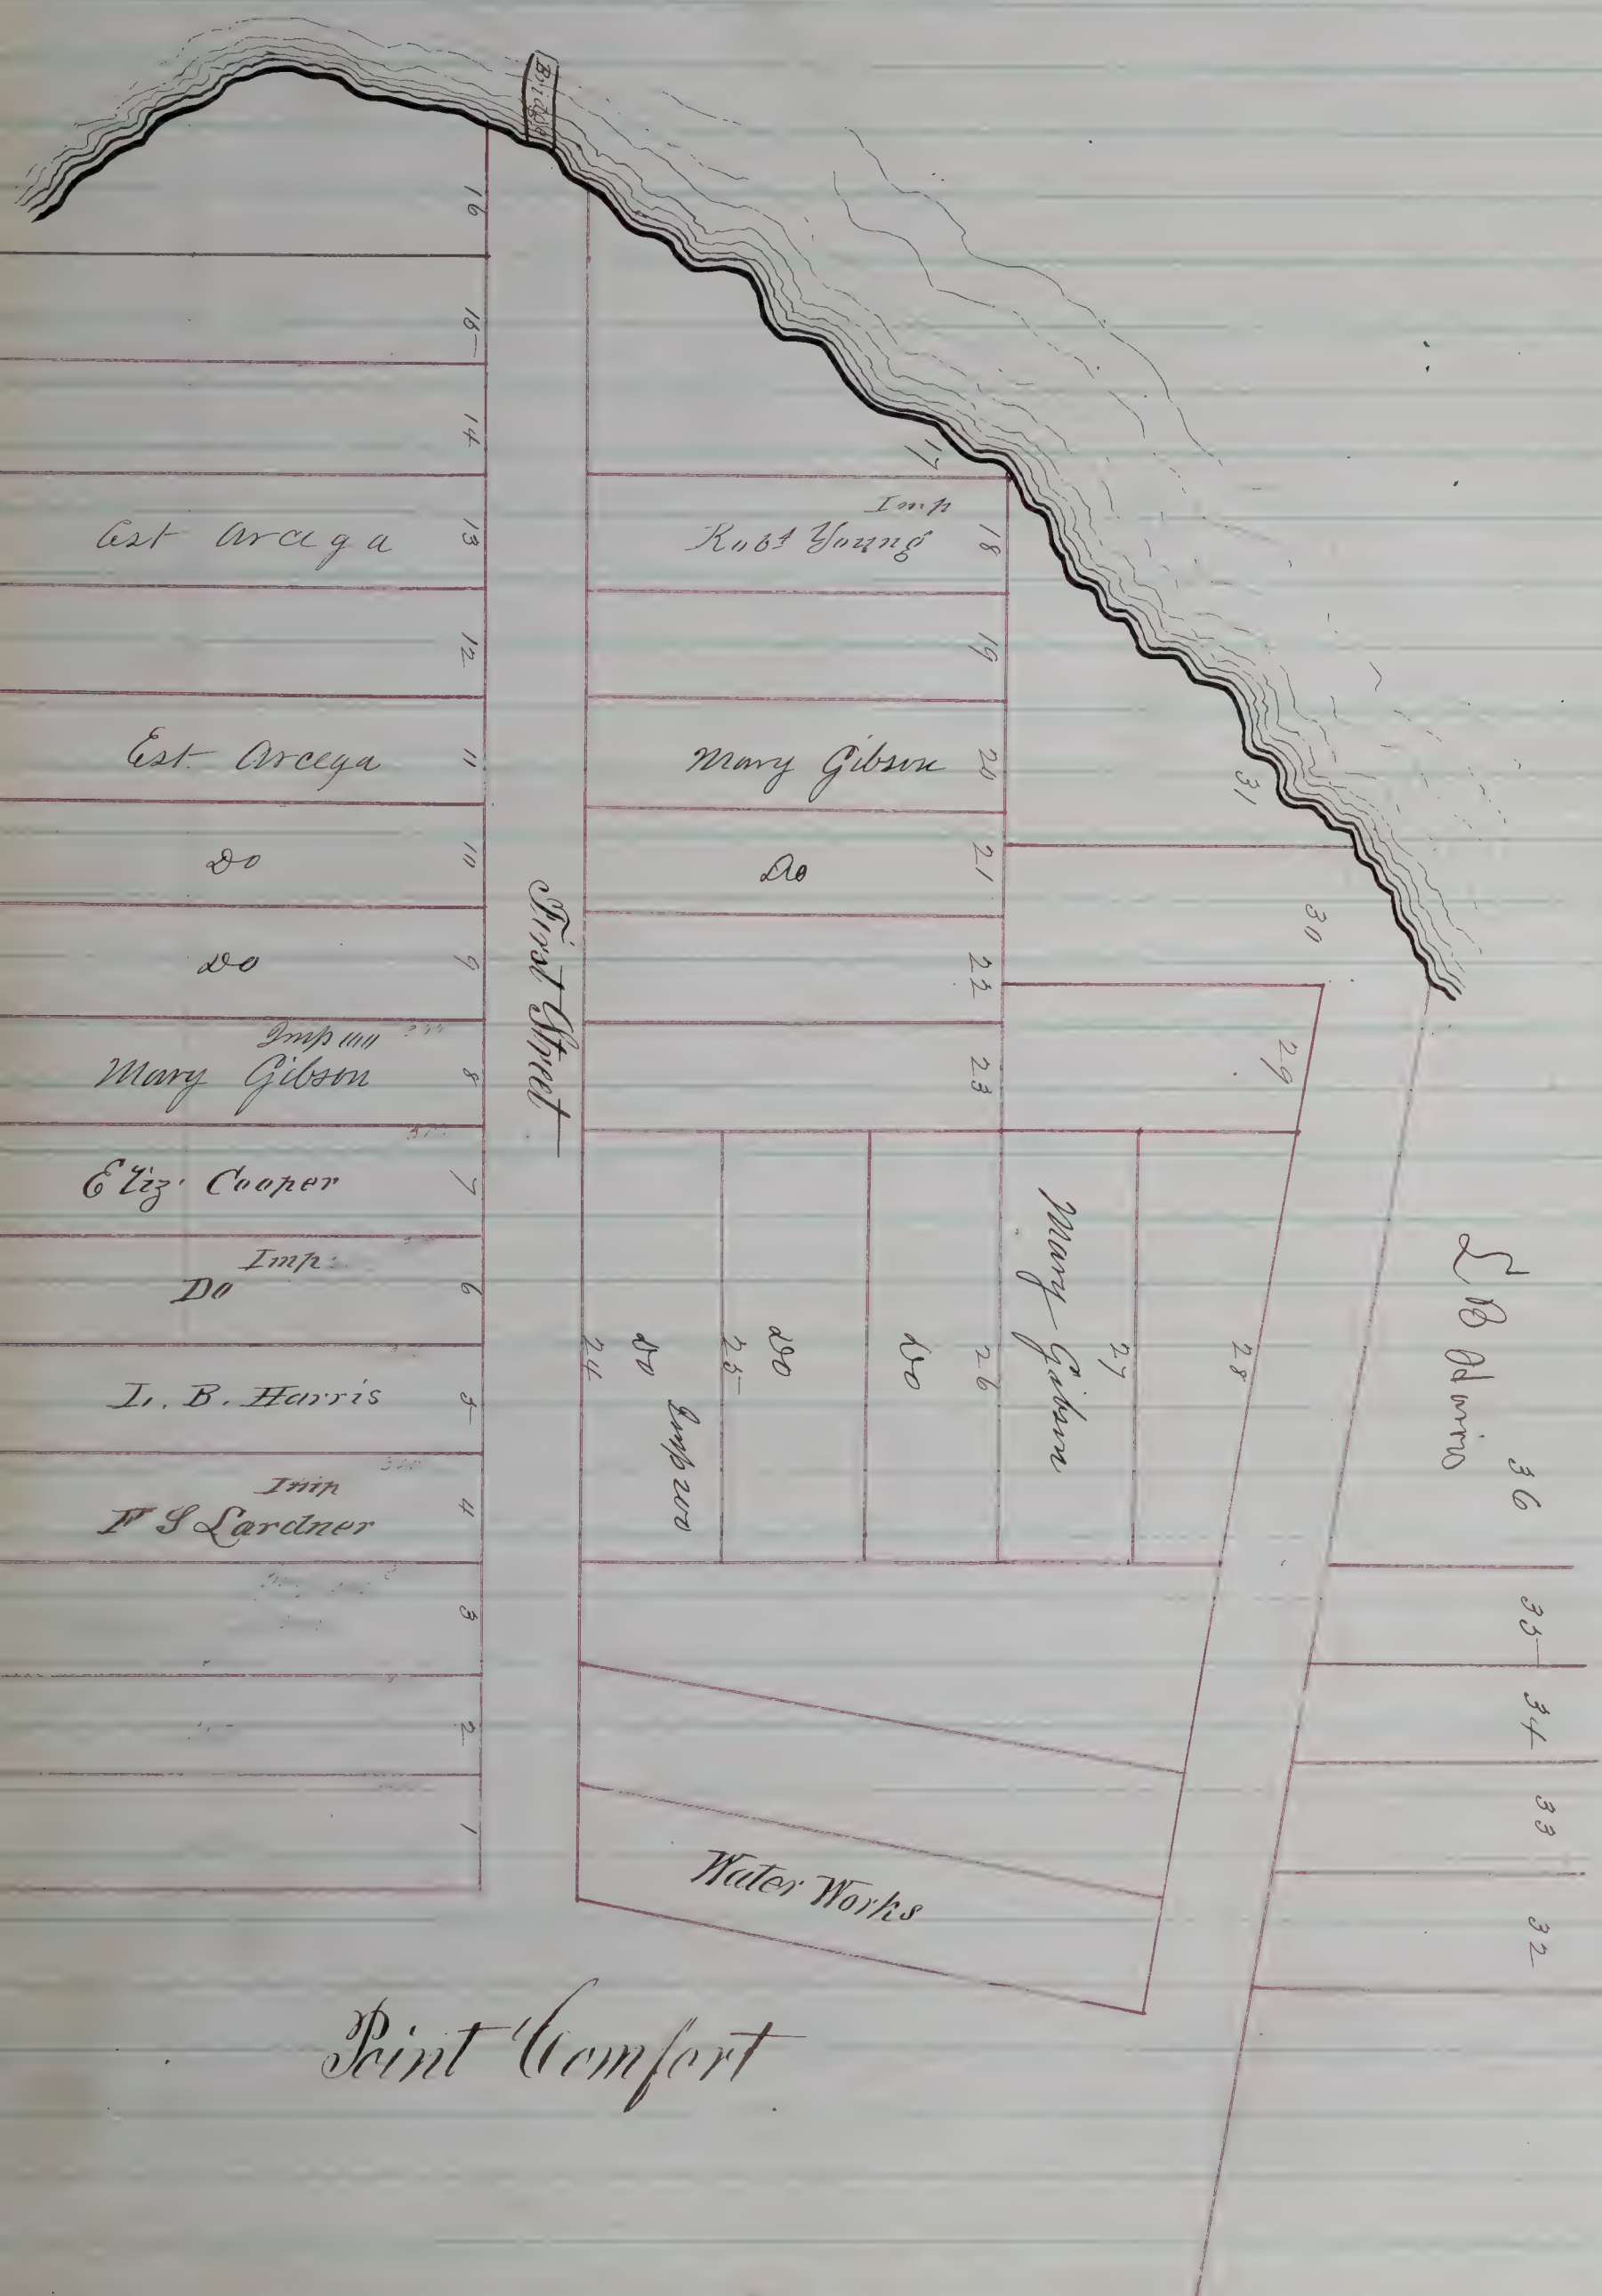 Bridge
16
15
14
Est Arcega
13
12
Est. Arcega
11
Do
10
Do
9
Imp
Mary Gibson
8
Eliz. Cooper
7
Imp
Do
6
L. B. Harris
5
Imp
F S Lardner
4
3
2
1
First Street
17
Imp
Robt Young
18
19
Mary Gibson
20
Do
21
22
23
24
Do
25
Do
Do
26
Mary Gibson
27
28
29
30
31
L B
36
35
34
33
32
Water Works
Point Comfort